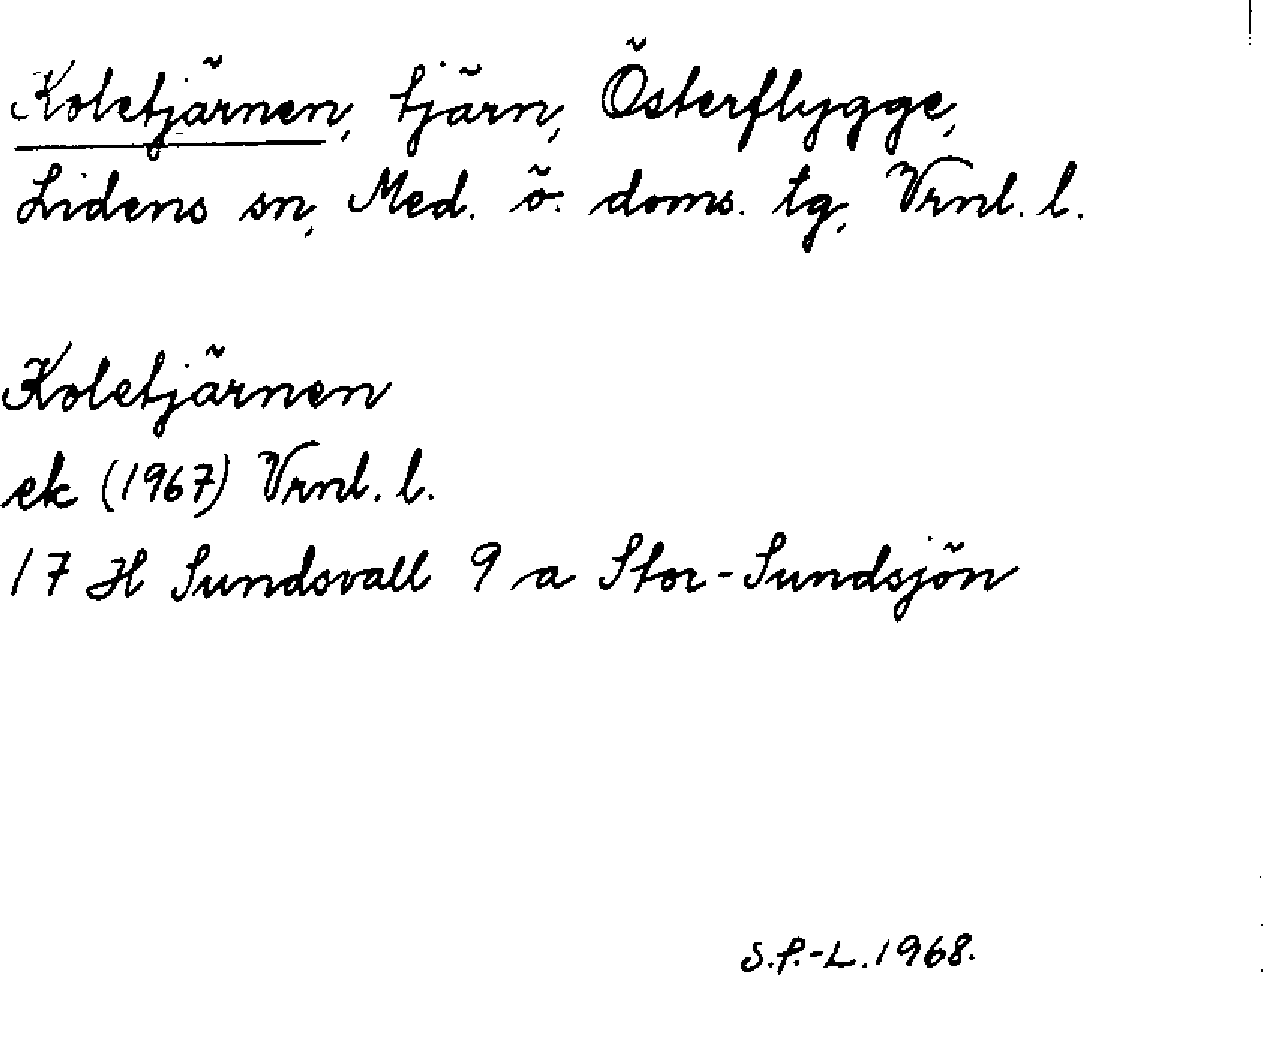 Koletjärnen, tjärn, Österflygge,
Lidens sn, Med. ö. doms. tg, Vrnl. l.
Koletjärnen
ek (1967) Vrnl. l.
17 H Sundsvall 9 a Stor-Sundsjön
S.P.-L. 1968.